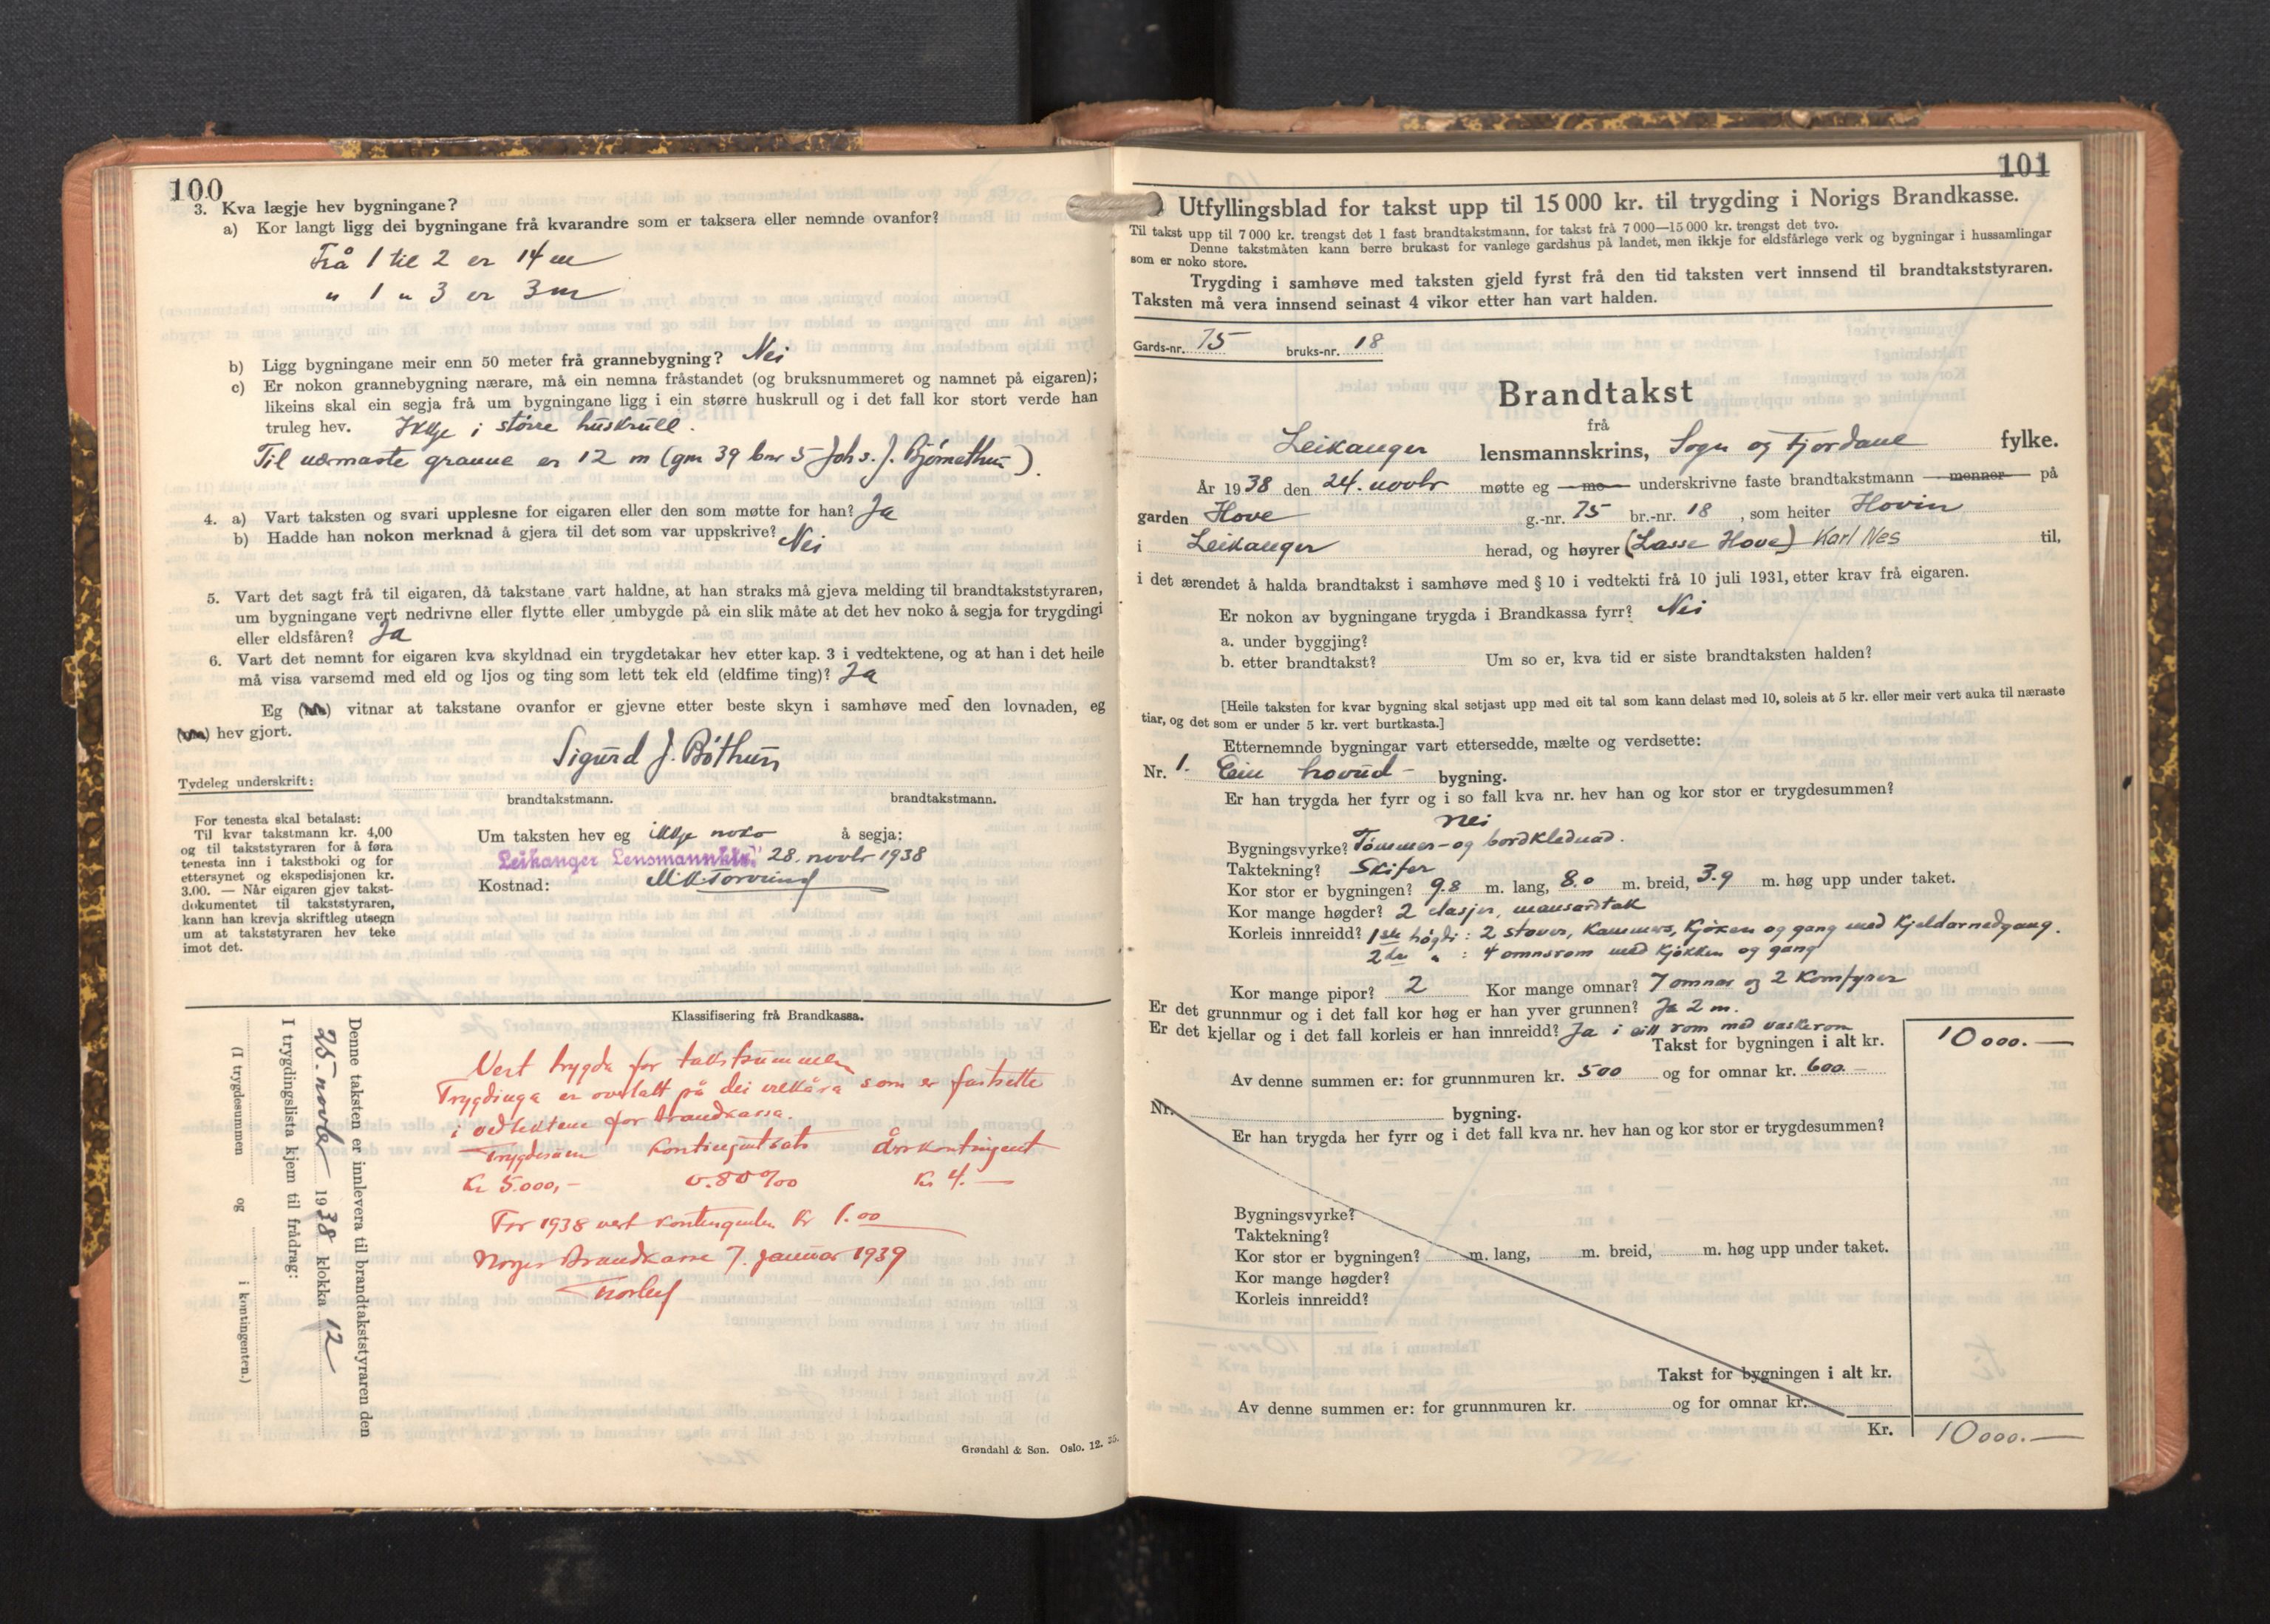 100
3. Kva lægje hev bygningane?
a) Kor langt ligg dei bygningane frå kvarandre som er taksera eller nemnde ovanfor?
Frå 1 til 2 er 14 m
" 1 " 3 er 3 m
b) Ligg bygningane meir enn 50 meter frå grannebygning? Nei
c) Er nokon grannebygning nærare, må ein nemna fråstandet (og bruksnummeret og namnet på eigaren);
likeins skal ein segja frå um bygningane ligg i ein større huskrull og i det fall kor stort verde han
truleg hev. Ikkje i större huskrull.
Til nærmaste granne er 12 m (gnr 39 bnr 5 Johs. J. Bjørnethun).
4. a) Vart taksten og svari upplesne for eigaren eller den som møtte for han? Ja
b) Hadde han nokon merknad å gjera til det som var uppskrive? Nei
5. Vart det sagt frå til eigaren, då takstane vart haldne, at han straks må gjeva melding til brandtakststyraren,
um bygningane vert nedrivne eller flytte eller umbygde på ein slik måte at det hev noko å segja for trygdingi
eller eldsfåren? Ja
6. Vart det nemnt for eigaren kva skyldnad ein trygdetakar hev etter kap. 3 i vedtektene, og at han i det heile
må visa varsemd med eld og ljos og ting som lett tek eld (eldfime ting)? Ja
Eg (me) vitnar at takstane ovanfor er gjevne etter beste skyn i samhøve med den lovnaden, eg
(me) hev gjort.
Sigurd J. Bóthun
Tydeleg underskrift:
brandtakstmann. brandtakstmann.
For tenesta skal betalast:
Til kvar takstmann kr. 4,00
og til takststyraren for å føra
tenesta inn i takstboki og for
ettersynet og ekspedisjonen kr.
3.00. — Når eigaren gjev takst-
dokumentet til takststyraren,
kann han krevja skriftleg utsegn
um at takststyraren hev teke
imot det.
Um taksten hev eg ikkje noko å segja:
Leikanger Lensmannskt. 28. novbr 1938
Kostnad:
Klassifisering frå Brandkassa.
Vert trygda for takstsummen
Trygdinga er overlatt på dei vilkåra som er fastsette
i vedtektene for Brandkassa.
Trygdesum Kontingentsats Årskontingent
Kr 5.000,- 0.80 ‰ Kr 4.—
For 1938 vert kontingenten kr 1.00
Norges Brandkasse 7. januar 1939
Denne taksten er innlevera til brandtakststyraren den
25. novbr 1938 klokka 12
I trygdingslista kjem til frådrag:
(I trygdesummen og i kontingenten.)
Grøndahl & Søn. Oslo. 12. 35.
101
Utfyllingsblad for takst upp til 15 000 kr. til trygding i Norigs Brandkasse.
Til takst upp til 7 000 kr. trengst det 1 fast brandtakstmann, for takst frå 7 000—15 000 kr. trengst det tvo.
Denne takstmåten kann berre brukast for vanlege gardshus på landet, men ikkje for eldsfårlege verk og bygningar i hussamlingar
som er noko store.
Trygding i samhøve med taksten gjeld fyrst frå den tid taksten vert innsend til brandtakststyraren.
Taksten må vera innsend seinast 4 vikor etter han vart halden.
Gards-nr. 75 bruks-nr. 18
Brandtakst
frå
Leikanger lensmannskrins, Sogn og Fjordane fylke.
År 1938 den 24. novbr møtte eg me underskrivne faste brandtakstmann menner på
garden Hove g.-nr. 75 br.-nr. 18, som heiter Hovin
i Leikanger herad, og høyrer (Lasse Hove) Karl Nes til,
i det ærendet å halda brandtakst i samhøve med § 10 i vedtekti frå 10 juli 1931, etter krav frå eigaren.
Er nokon av bygningane trygda i Brandkassa fyrr? Nei
a. under byggjing?
b. etter brandtakst? Um so er, kva tid er siste brandtaksten halden?
[Heile taksten for kvar bygning skal setjast upp med eit tal som kann delast med 10, soleis at 5 kr. eller meir vert auka til næraste
tiar, og det som er under 5 kr. vert burtkasta.]
Etternemnde bygningar vart ettersedde, mælte og verdsette:
Nr. 1. Ein hovud- bygning.
Er han trygda her fyrr og i so fall kva nr. hev han og kor stor er trygdesummen?
nei
Bygningsvyrke? Tømmer- og bordklednad.
Taktekning? Skifer
Kor stor er bygningen? 9.8 m. lang, 8.0 m. breid, 3.9 m. høg upp under taket.
Kor mange høgder? 2 etasjer, mansardtak
Korleis innreidd? 1ste høgdi: 2 stover, kammers, kjøken og gang med kjeldarnedgang.
2dre " : 4 omnsrom med kjøkken og gang
Kor mange pipor? 2 Kor mange omnar? 7 omnar og 2 komfyrer
Er det grunnmur og i det fall kor høg er han yver grunnen? Ja 2 m.
Er det kjellar og i det fall korleis er han innreidd? Ja i eitt rom med vaskerom
Takst for bygningen i alt kr. 10000.—
Av denne summen er: for grunnmuren kr. 500 og for omnar kr. 600.—
Nr. bygning.
Er han trygda her fyrr og i det fall kva nr. hev han og kor stor er trygdesummen?
Bygningsvyrke?
Taktekning?
Kor stor er bygningen? m. lang, m. breid, m. høg upp under taket.
Kor mange høgder?
Korleis innreidd?
Takst for bygningen i alt kr.
Av denne summen er: for grunnmuren kr. og for omnar kr.
Kr. 10000.—